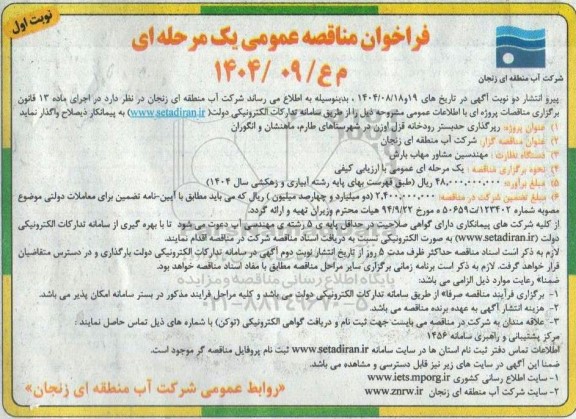 نوبت اول
فراخوان مناقصه عمومی یک مرحله ای
م ع/ ۰۹ /۱۴۰۴
شرکت آب منطقه ای زنجان
پیرو انتشار دو نوبت آگهی در تاریخ های ۱۹و۱۴۰۴/۰۸/۱۸ ، بدینوسیله به اطلاع می رساند شرکت آب منطقه ای زنجان در نظر دارد در اجرای ماده ۱۳ قانون
برگزاری مناقصات پروژه ای با اطلاعات عمومی مشروحه ذیل را از طریق سامانه تدارکات الکترونیکی دولت( www.setadiran.ir) به پیمانکار ذیصلاح واگذار نماید
۱) عنوان پروژه: رپرگذاری حدبستر رودخانه قزل اوزن در شهرستانهای طارم، ماهنشان و انگوران
۲) عنوان مناقصه گزار: شرکت آب منطقه ای زنجان
۳) دستگاه نظارت : مهندسین مشاور مهاب بارش
۴) نحوه برگزاری مناقصه : یک مرحله عمومی با ارزیابی کیفی
۵) مبلغ برآورد: ۴۸,۰۰۰,۰۰۰,۰۰۰ ریال (طبق فهرست بهای پایه رشته آبیاری و زهکشی سال ۱۴۰۴)
۶) مبلغ تضمین شرکت در مناقصه: ۲,۴۰۰,۰۰۰,۰۰۰ (دو میلیارد و چهارصد میلیون ) ریال که می باید مطابق با آیین-نامه تضمین برای معاملات دولتی موضوع
مصوبه شماره ۱۲۳۴۰۲/ت۵۰۶۵۹ ه مورخ ۹۴/۹/۲۲ هیات محترم وزیران تهیه و ارائه گردد.
از کلیه شرکت های پیمانکاری دارای گواهی صلاحیت در حداقل پایه ی ۵ رشته ی مهندسی آب دعوت می شود تا با بهره گیری از سامانه تدارکات الکترونیکی
دولت (www.setadiran.ir) به صورت الکترونیکی نسبت به دریافت اسناد مناقصه شرکت در مناقصه اقدام نمایند.
لازم به ذکر است اسناد مناقصه حداکثر ظرف مدت ۵ روز از تاریخ انتشار نوبت دوم آگهی در سامانه تدارکات الکترونیکی دولت بارگذاری و در دسترس متقاضیان
قرار خواهد گرفت. لازم به ذکر است برنامه زمانی برگزاری سایر مراحل مناقصه مطابق با مفاد اسناد مناقصه خواهد بود.
ضمنا رعایت موارد ذیل الزامی می باشد:
۱- برگزاری فرآیند مناقصه صرفا از طریق سامانه تدارکات الکترونیکی دولت می باشد و کلیه مراحل فرایند مذکور در بستر سامانه امکان پذیر می باشد.
۲- هزینه انتشار آگهی به عهده برنده مناقصه می باشد.
۳- علاقه مندان به شرکت در مناقصه می بایست جهت ثبت نام و دریافت گواهی الکترونیکی (توکن) با شماره های ذیل تماس حاصل نمایند :
مرکز پشتیبانی و راهبری سامانه ۱۴۵۶
اطلاعات تماس دفتر ثبت نام استان ها در سایت سامانه www.setadiran.ir ثبت نام پروفایل مناقصه گر موجود است.
ضمنا این آگهی در سایت های زیر نیز قابل دسترسی و مشاهده می باشد.
۱- سایت اطلاع رسانی کشوری www.iets.mporg.ir
۲- سایت شرکت آب منطقه ای زنجان www.znrw.ir
«روابط عمومی شرکت آب منطقه ای زنجان»
پایگاه اطلاع رسانی مناقصه و مزایده